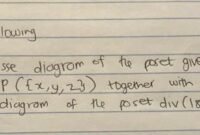 lowing
sse diagram of the poset give
P ({x,y,z}) together with
diagram of the poset div(18